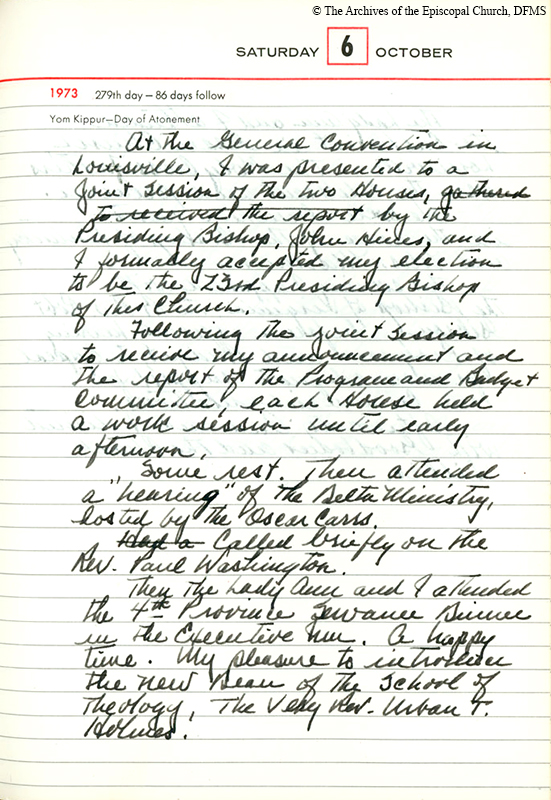 © The Archives of the Episcopal Church, DFMS
SATURDAY 6 OCTOBER
1973 279th day – 86 days follow
Yom Kippur—Day of Atonement
At the General Convention in
Louisville, I was presented to a
Joint Session of the two Houses, gathered
to received the report by the
Presiding Bishop, John Hines, and
I formally accepted my election
to be the 23rd Presiding Bishop
of this Church.
Following the joint session
to receive my announcement and
the report of the Program and Budget
Committee, each House held
a work session until early
afternoon.
Some rest. Then attended
a "hearing" of the Delta Ministry,
hosted by the Oscar Carrs.
Had a Called briefly on the
Rev. Paul Washington.
Then the Lady Ann and I attended
the 4th Province Sewanee Dinner
in the Executive Inn. A happy
time. My pleasure to introduce
the new Dean of the School of
Theology, The Very Rev. Urban T.
Holmes.